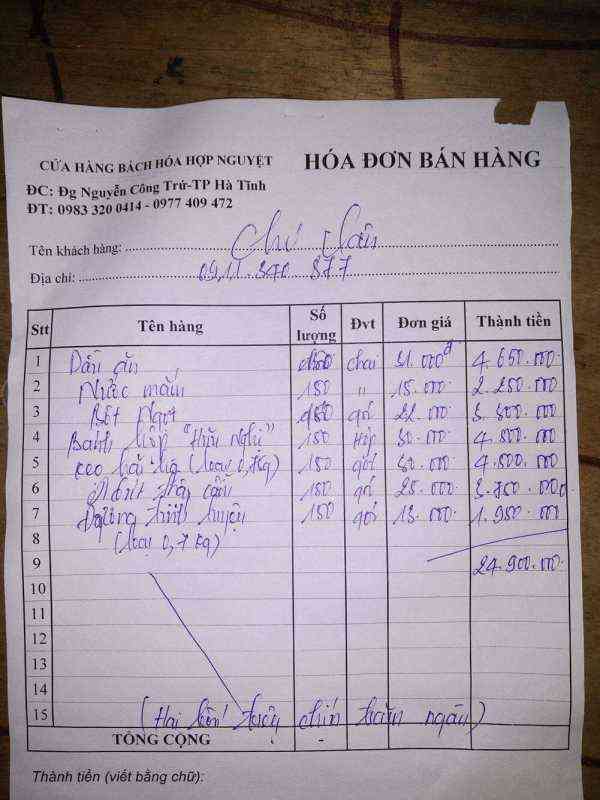 CỬA HÀNG BÁCH HÓA HỢP NGUYỆT
HÓA ĐƠN BÁN HÀNG
ĐC: Đg Nguyễn Công Trứ-TP Hà Tĩnh
ĐT: 0983 320 0414 - 0977 409 472
Tên khách hàng: Chú
Địa chỉ: 0911.340 377
Stt Tên hàng Số lượng Đvt Đơn giá Thành tiền
1 Dầu ăn 150 chai 31.000đ 4.650.000
2 Nước mắm 150 " 15.000 2.250.000
3 Bột Ngọt 150 gói 22.000 3.300.000
4 Bánh hộp "Hữu Nghị" 150 Hộp 30.000 4.500.000
5 kẹo (loại 0,7kg) 150 gói 30.000 4.500.000
6 Mứt thập cẩm 150 gói 25.000 3.750.000
7 Đường tinh luyện 150 gói 13.000 1.950.000
8 (loại 0,7 kg)
9 24.900.000
10
11
12
13
14
15 (Hai bốn triệu chín trăm ngàn)
TỔNG CỘNG -
Thành tiền (viết bằng chữ):